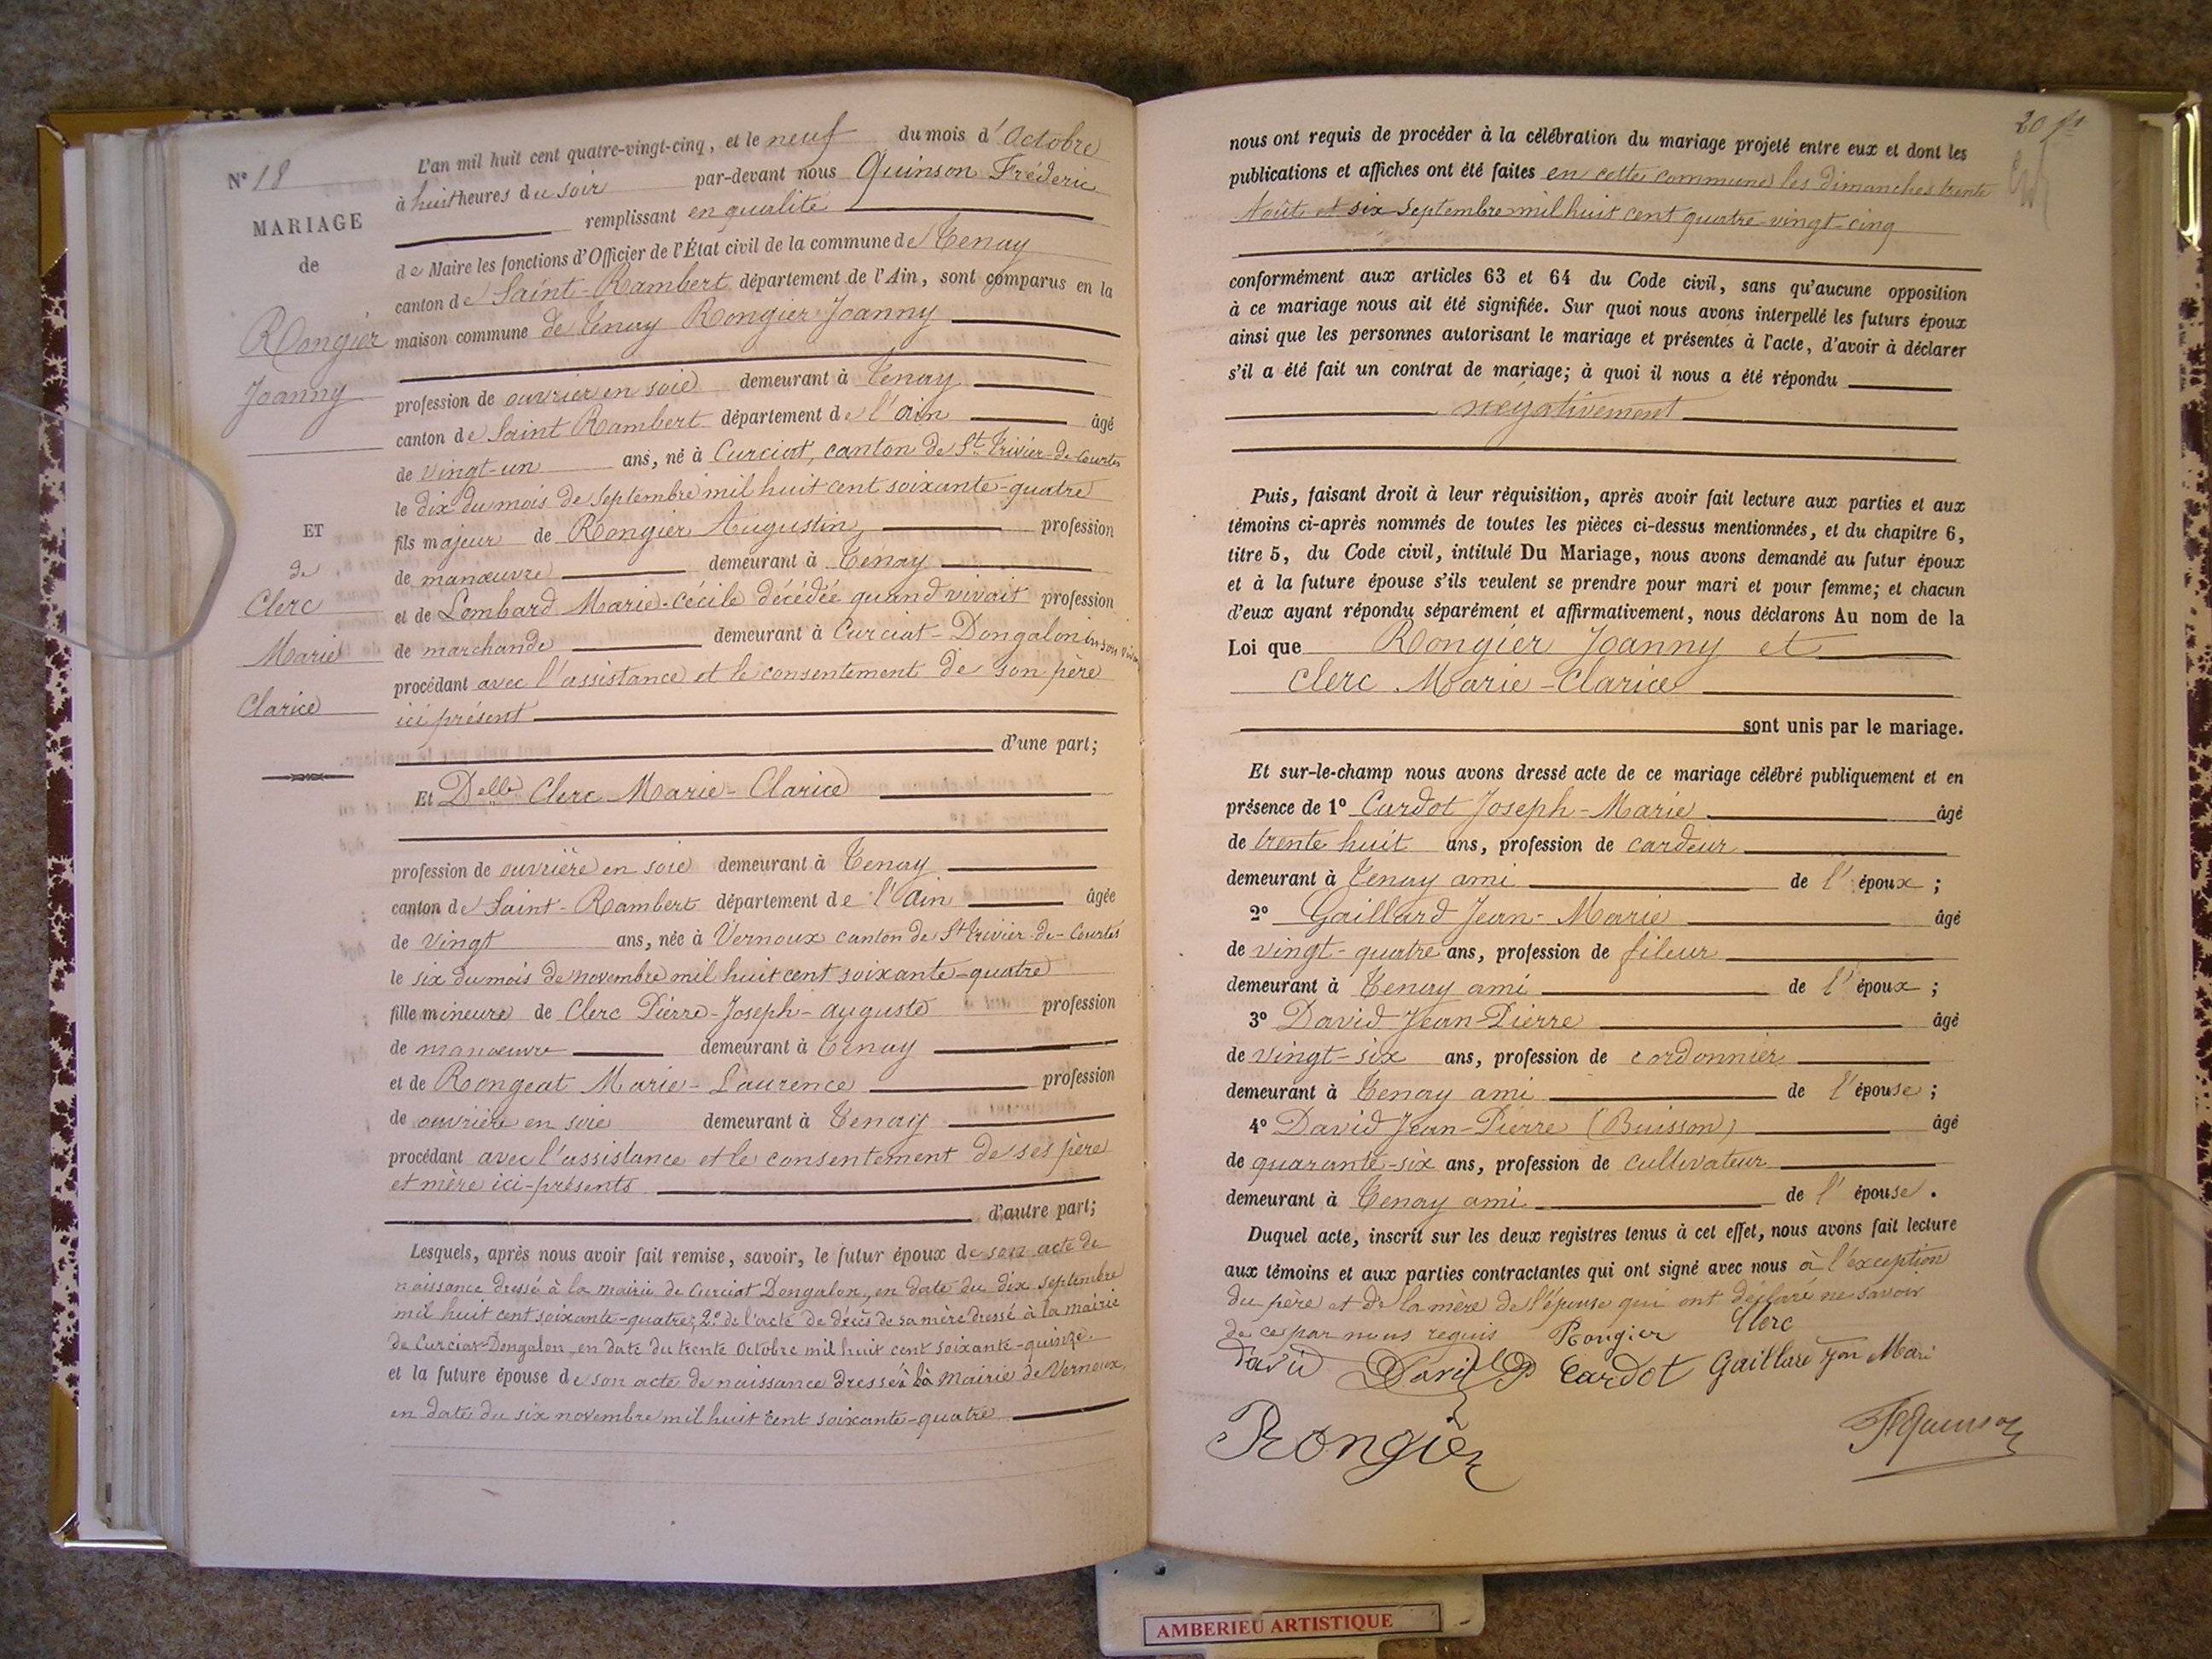 N° 18
MARIAGE
de
Rongier
Joanny
ET
de
Clerc
Marie
Clarice
L'an mil huit cent quatre-vingt-cinq, et le neuf du mois d'Octobre
à huit heures du soir par-devant nous Quinson Fréderic
remplissant en qualité
de Maire les fonctions d'Officier de l'État civil de la commune de Tenay
canton de Saint-Rambert département de l'Ain, sont comparus en la
maison commune de Tenay Rongier Joanny
profession de ouvrier en soie demeurant à Tenay
canton de Saint Rambert département de l'Ain âgé
de vingt-un ans, né à Curciat, canton de St Trivier-de-Courtes
le dix du mois de Septembre mil huit cent soixante-quatre
fils majeur de Rongier Augustin profession
de manœuvre demeurant à Tenay
et de Lombard Marie-Cécile décédée quand vivait profession
de marchande demeurant à Curciat-Dongalon en son viva
procédant avec l'assistance et le consentement de son père
ici présent
d'une part;
Et Delle Clerc Marie-Clarice
profession de ouvrière en soie demeurant à Tenay
canton de Saint-Rambert département de l'Ain âgée
de vingt ans, née à Vernoux canton de St Trivier-de-Courtes
le six du mois de novembre mil huit cent soixante-quatre
fille mineure de Clerc Pierre-Joseph-Auguste profession
de manœuvre demeurant à Tenay
et de Rongeat Marie-Laurence profession
de ouvrière en soie demeurant à Tenay
procédant avec l'assistance et le consentement de ses père
et mère ici-présents
d'autre part;
Lesquels, après nous avoir fait remise, savoir, le futur époux de son acte de
naissance dressé à la mairie de Curciat Dongalon, en date du dix septembre
mil huit cent soixante-quatre; 2° de l'acte de décès de sa mère dressé à la mairie
de Curciat-Dongalon en date du trente Octobre mil huit cent soixante-quinze.
et la future épouse de son acte de naissance dressé à la Mairie de Vernoux,
en date du six novembre mil huit cent soixante-quatre
nous ont requis de procéder à la célébration du mariage projeté entre eux et dont les
publications et affiches ont été faites en cette commune les dimanches trente
Août et six Septembre mil huit cent quatre-vingt-cinq
conformément aux articles 63 et 64 du Code civil, sans qu'aucune opposition
à ce mariage nous ait été signifiée. Sur quoi nous avons interpellé les futurs époux
ainsi que les personnes autorisant le mariage et présentes à l'acte, d'avoir à déclarer
s'il a été fait un contrat de mariage; à quoi il nous a été répondu
négativement
Puis, faisant droit à leur réquisition, après avoir fait lecture aux parties et aux
témoins ci-après nommés de toutes les pièces ci-dessus mentionnées, et du chapitre 6,
titre 5, du Code civil, intitulé Du Mariage, nous avons demandé au futur époux
et à la future épouse s'ils veulent se prendre pour mari et pour femme; et chacun
d'eux ayant répondu séparément et affirmativement, nous déclarons Au nom de la
Loi que Rongier Joanny et
Clerc Marie-Clarice
sont unis par le mariage.
Et sur-le-champ nous avons dressé acte de ce mariage célébré publiquement et en
présence de 1° Cardot Joseph-Marie âgé
de trente huit ans, profession de cardeur
demeurant à Tenay ami de l'époux;
2° Gaillard Jean-Marie âgé
de vingt-quatre ans, profession de fileur
demeurant à Tenay ami de l'époux;
3° David Jean-Pierre âgé
de vingt-six ans, profession de cordonnier
demeurant à Tenay ami de l'épouse;
4° David Jean-Pierre (Buisson) âgé
de quarante-six ans, profession de cultivateur
demeurant à Tenay ami de l'épouse.
Duquel acte, inscrit sur les deux registres tenus à cet effet, nous avons fait lecture
aux témoins et aux parties contractantes qui ont signé avec nous à l'exception
du père et de la mère de l'épouse qui ont déclaré ne savoir
de ce par nous requis Rongier Clerc
David David Cardot Gaillard Jan Mari
Rongier
AMBERIEU ARTISTIQUE